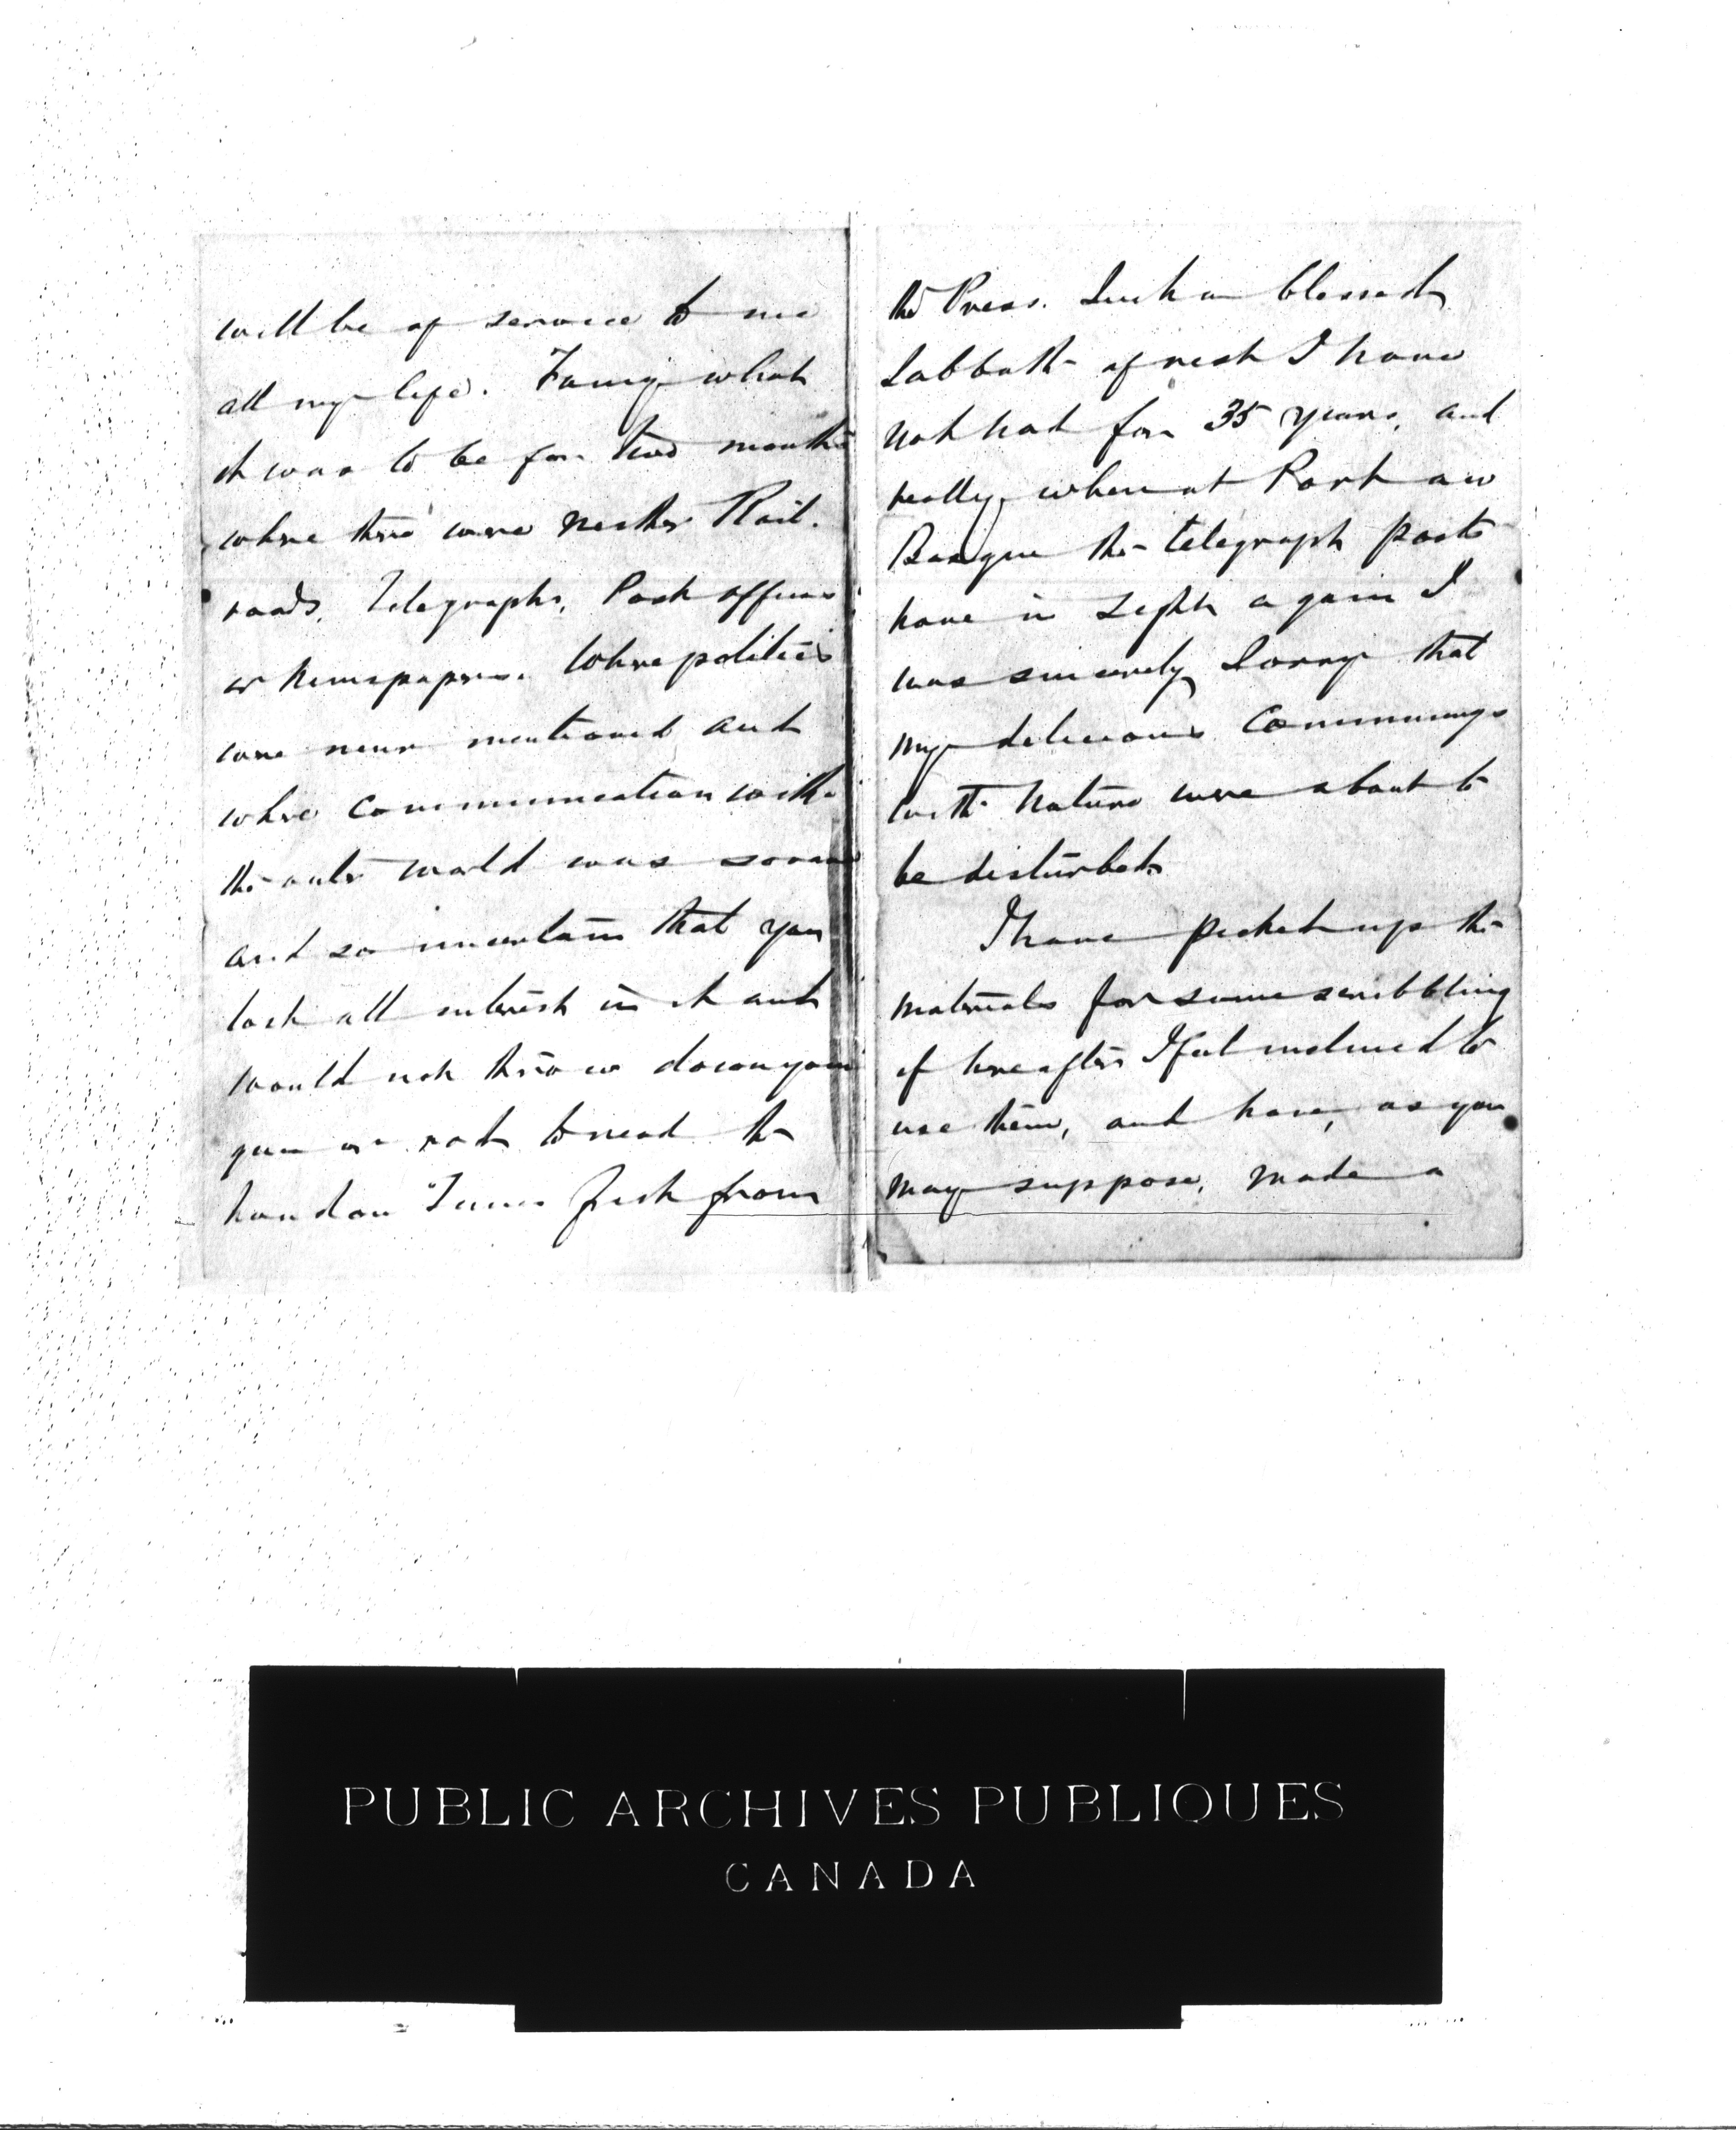 will be of service to me
all my life. Fancy what
it was to be for two months
where there were neither Rail.
roads, Telegraphs, Post offices
or Newspapers. Where politics
were never mentioned and
where communication with
the outer world was so rare
and so uncertain that you
lost all interest in it and
would not throw down your
gun or rod to read the
London Times fresh from
the Press. Such a blessed
Sabbath of rest I have
not had for 35 years, and
really, when at Port aux
Basque the telegraph posts
hove in sight again I
was sincerely sorry that
my delicious communings
with Nature were about to
be disturbed.
I have picked up the
materials for some scribbling
if hereafter I feel inclined to
use them, and have, as you
may suppose, made a
PUBLIC ARCHIVES PUBLIQUES
CANADA